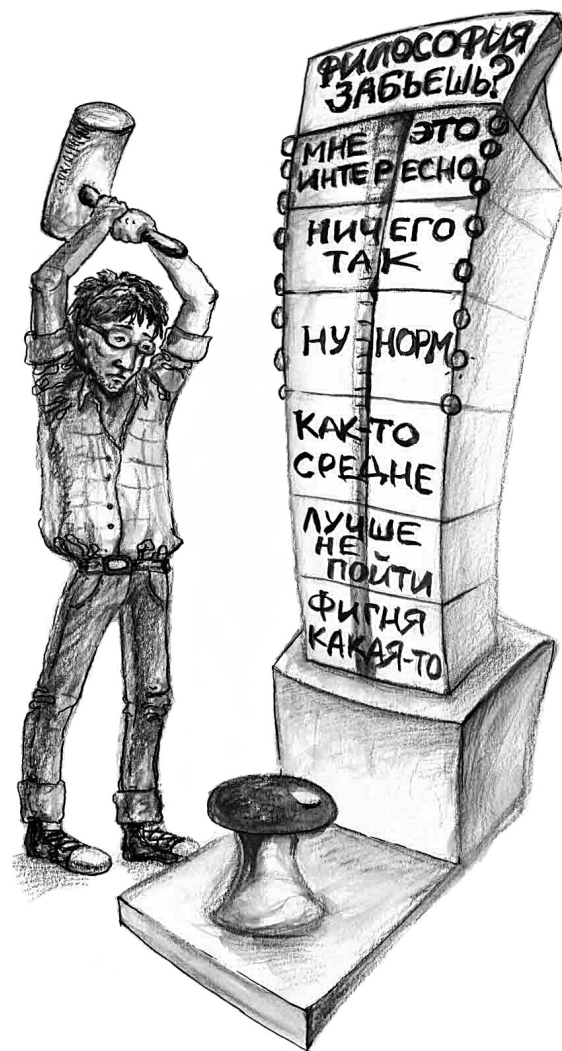 ФИЛОСОФИЯ
ЗАБЬЕШЬ?
МНЕ ЭТО
ИНТЕРЕСНО
НИЧЕГО
ТАК
НУ НОРМ
КАК-ТО
СРЕДНЕ
ЛУЧШЕ
НЕ
ПОЙТИ
ФИГНЯ
КАКАЯ-ТО